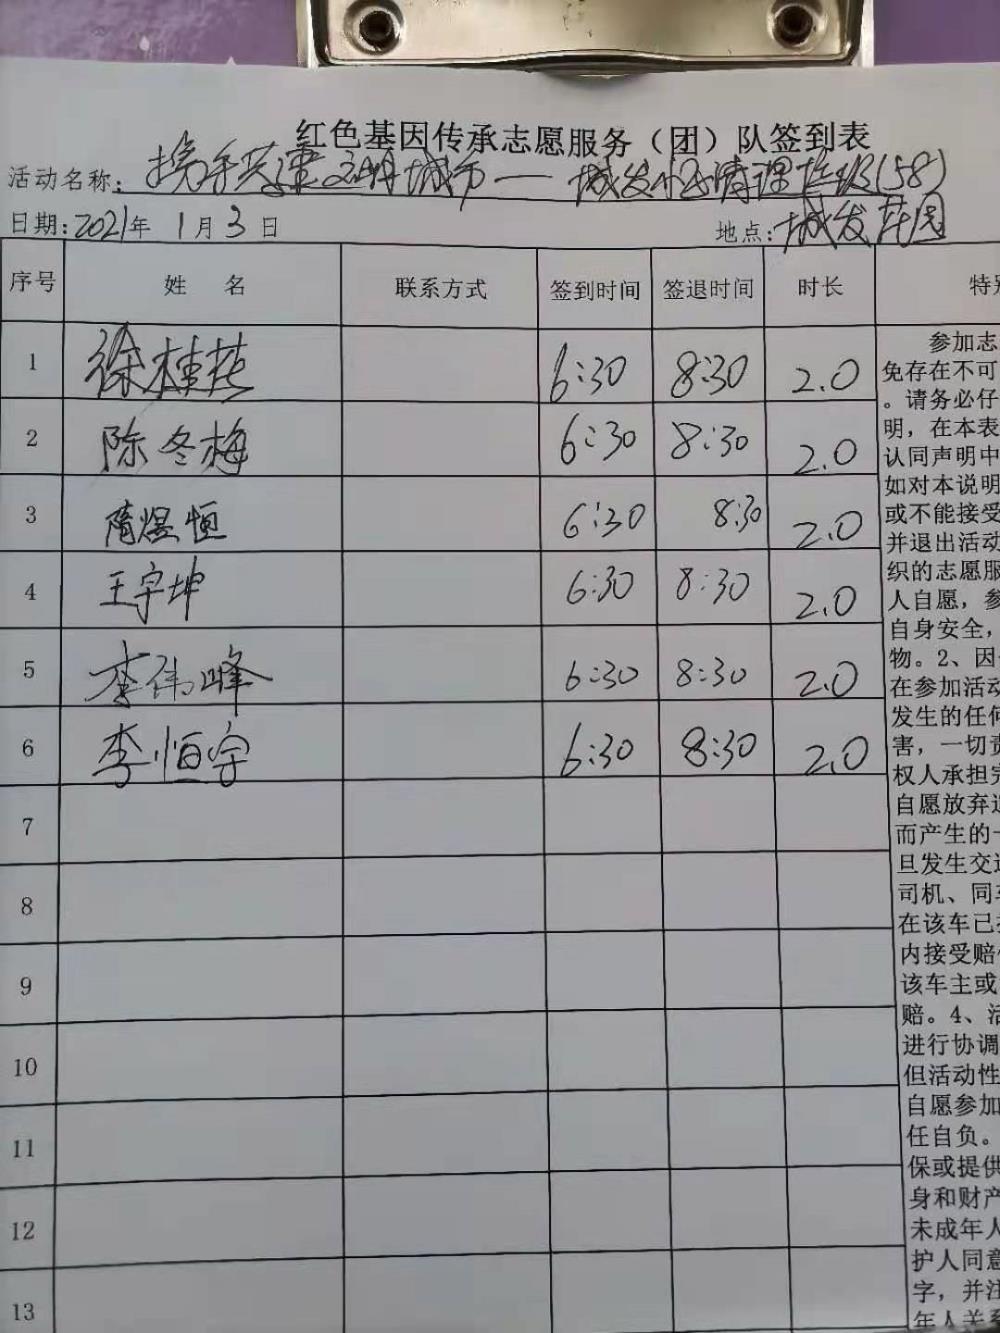 红色基因传承志愿服务（团）队签到表
活动名称：携手共建文明城市——城发小区清理垃圾(58)
日期:2021年 1月3日 地点:城发花园
序号 姓 名 联系方式 签到时间 签退时间 时长 特
1 徐桂花 6:30 8:30 2.0
2 陈冬梅 6:30 8:30 2.0
3 隋煜恒 6:30 8:30 2.0
4 王宇坤 6:30 8:30 2.0
5 李伟峰 6:30 8:30 2.0
6 李恒宇 6:30 8:30 2.0
7
8
9
10
11
12
13
参加志
免存在不可
。请务必仔
明，在本表
认同声明中
如对本说明
或不能接受
并退出活动
织的志愿服
人自愿，参
自身安全，
物。2、因
在参加活动
发生的任何
害，一切责
权人承担完
自愿放弃追
而产生的一
旦发生交通
司机、同车
在该车已投
内接受赔偿
该车主或
赔。4、活
进行协调
但活动性
自愿参加
任自负。
保或提供
身和财产
未成年人
护人同意
字，并注
年人关系